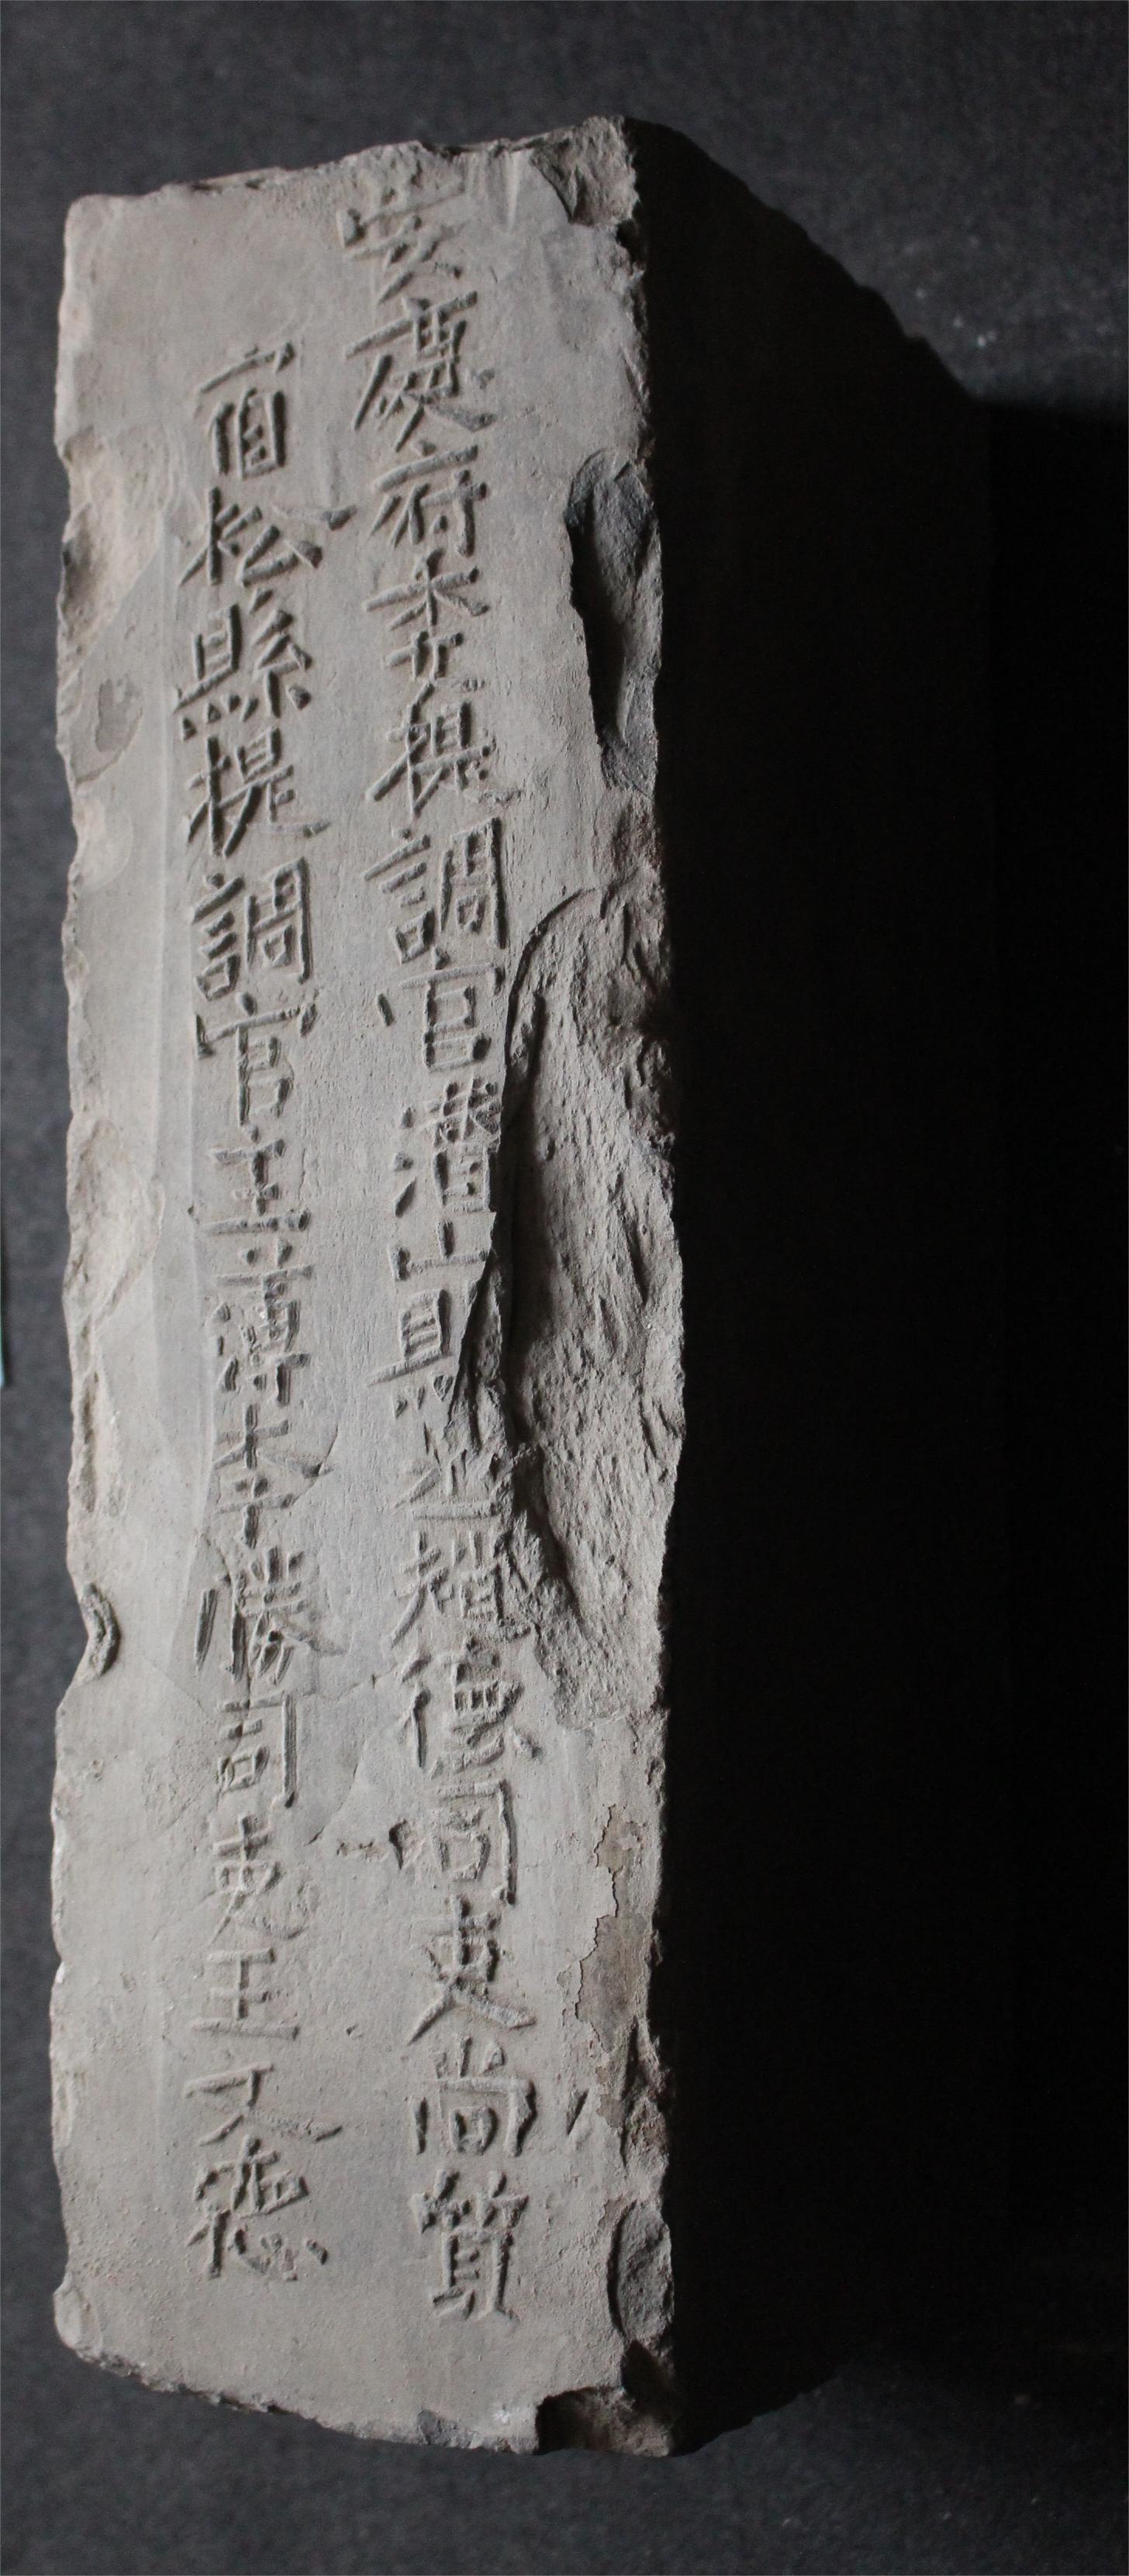 安慶府委提調官潛山縣丞趙德司吏尚質
宿松縣提調官主簿李勝司吏王文德